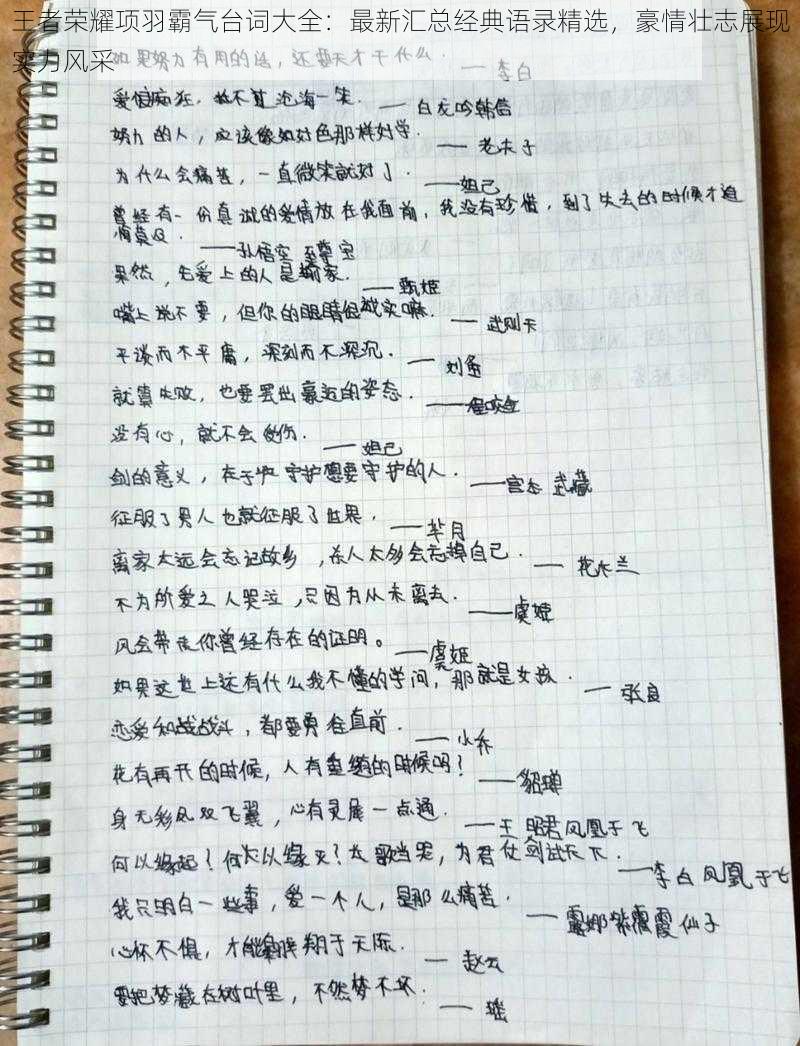 王者荣耀项羽霸气台词大全：最新汇总经典语录精选，豪情壮志展现
实力风采
如果努力有用的话，还要天才干什么. —李白
爱恨痴狂，敌不过沧海一笑. —白龙吟韩信
努力的人，应该像好好色那样好学. —老夫子
为什么会痛苦，一直微笑就好了. —妲己
曾经有一份真诚的爱情放在我面前，我没有珍惜，到了失去的时候才追
悔莫及. —孙悟空 至尊宝
果然，先爱上的人是输家. —甄姬
嘴上说不要，但你的眼睛很诚实嘛. —武则天
平淡而不平庸，深刻而不深沉. —刘备
就算失败，也要摆出豪迈的姿态. —程咬金
没有心，就不会受伤. —妲己
剑的意义，在于守护想要守护的人. —宫本 武藏
征服了男人也就征服了世界. —芈月
离家太远会忘记故乡，杀人太多会忘掉自己. —花木兰
不为所爱之人哭泣，只因为从未离去. —虞姬
风会带走你曾经存在的证明。—虞姬
如果这世上还有什么我不懂的学问，那就是女孩. —张良
恋爱和战战斗，都要勇往直前. —小乔
花有再开的时候，人有重逢的时候吗？—貂蝉
身无彩凤双飞翼，心有灵犀一点通. —王昭君凤凰于飞
何以缘起？何以缘灭？长歌当哭，为君仗剑试天下. —李白凤凰于飞
我只明白一些事，爱一个人，是那么痛苦. —露娜紫霞仙子
心怀不惧，才能翱翔于天际. —赵云
要把梦藏在树叶里，不然梦不坏. —瑶